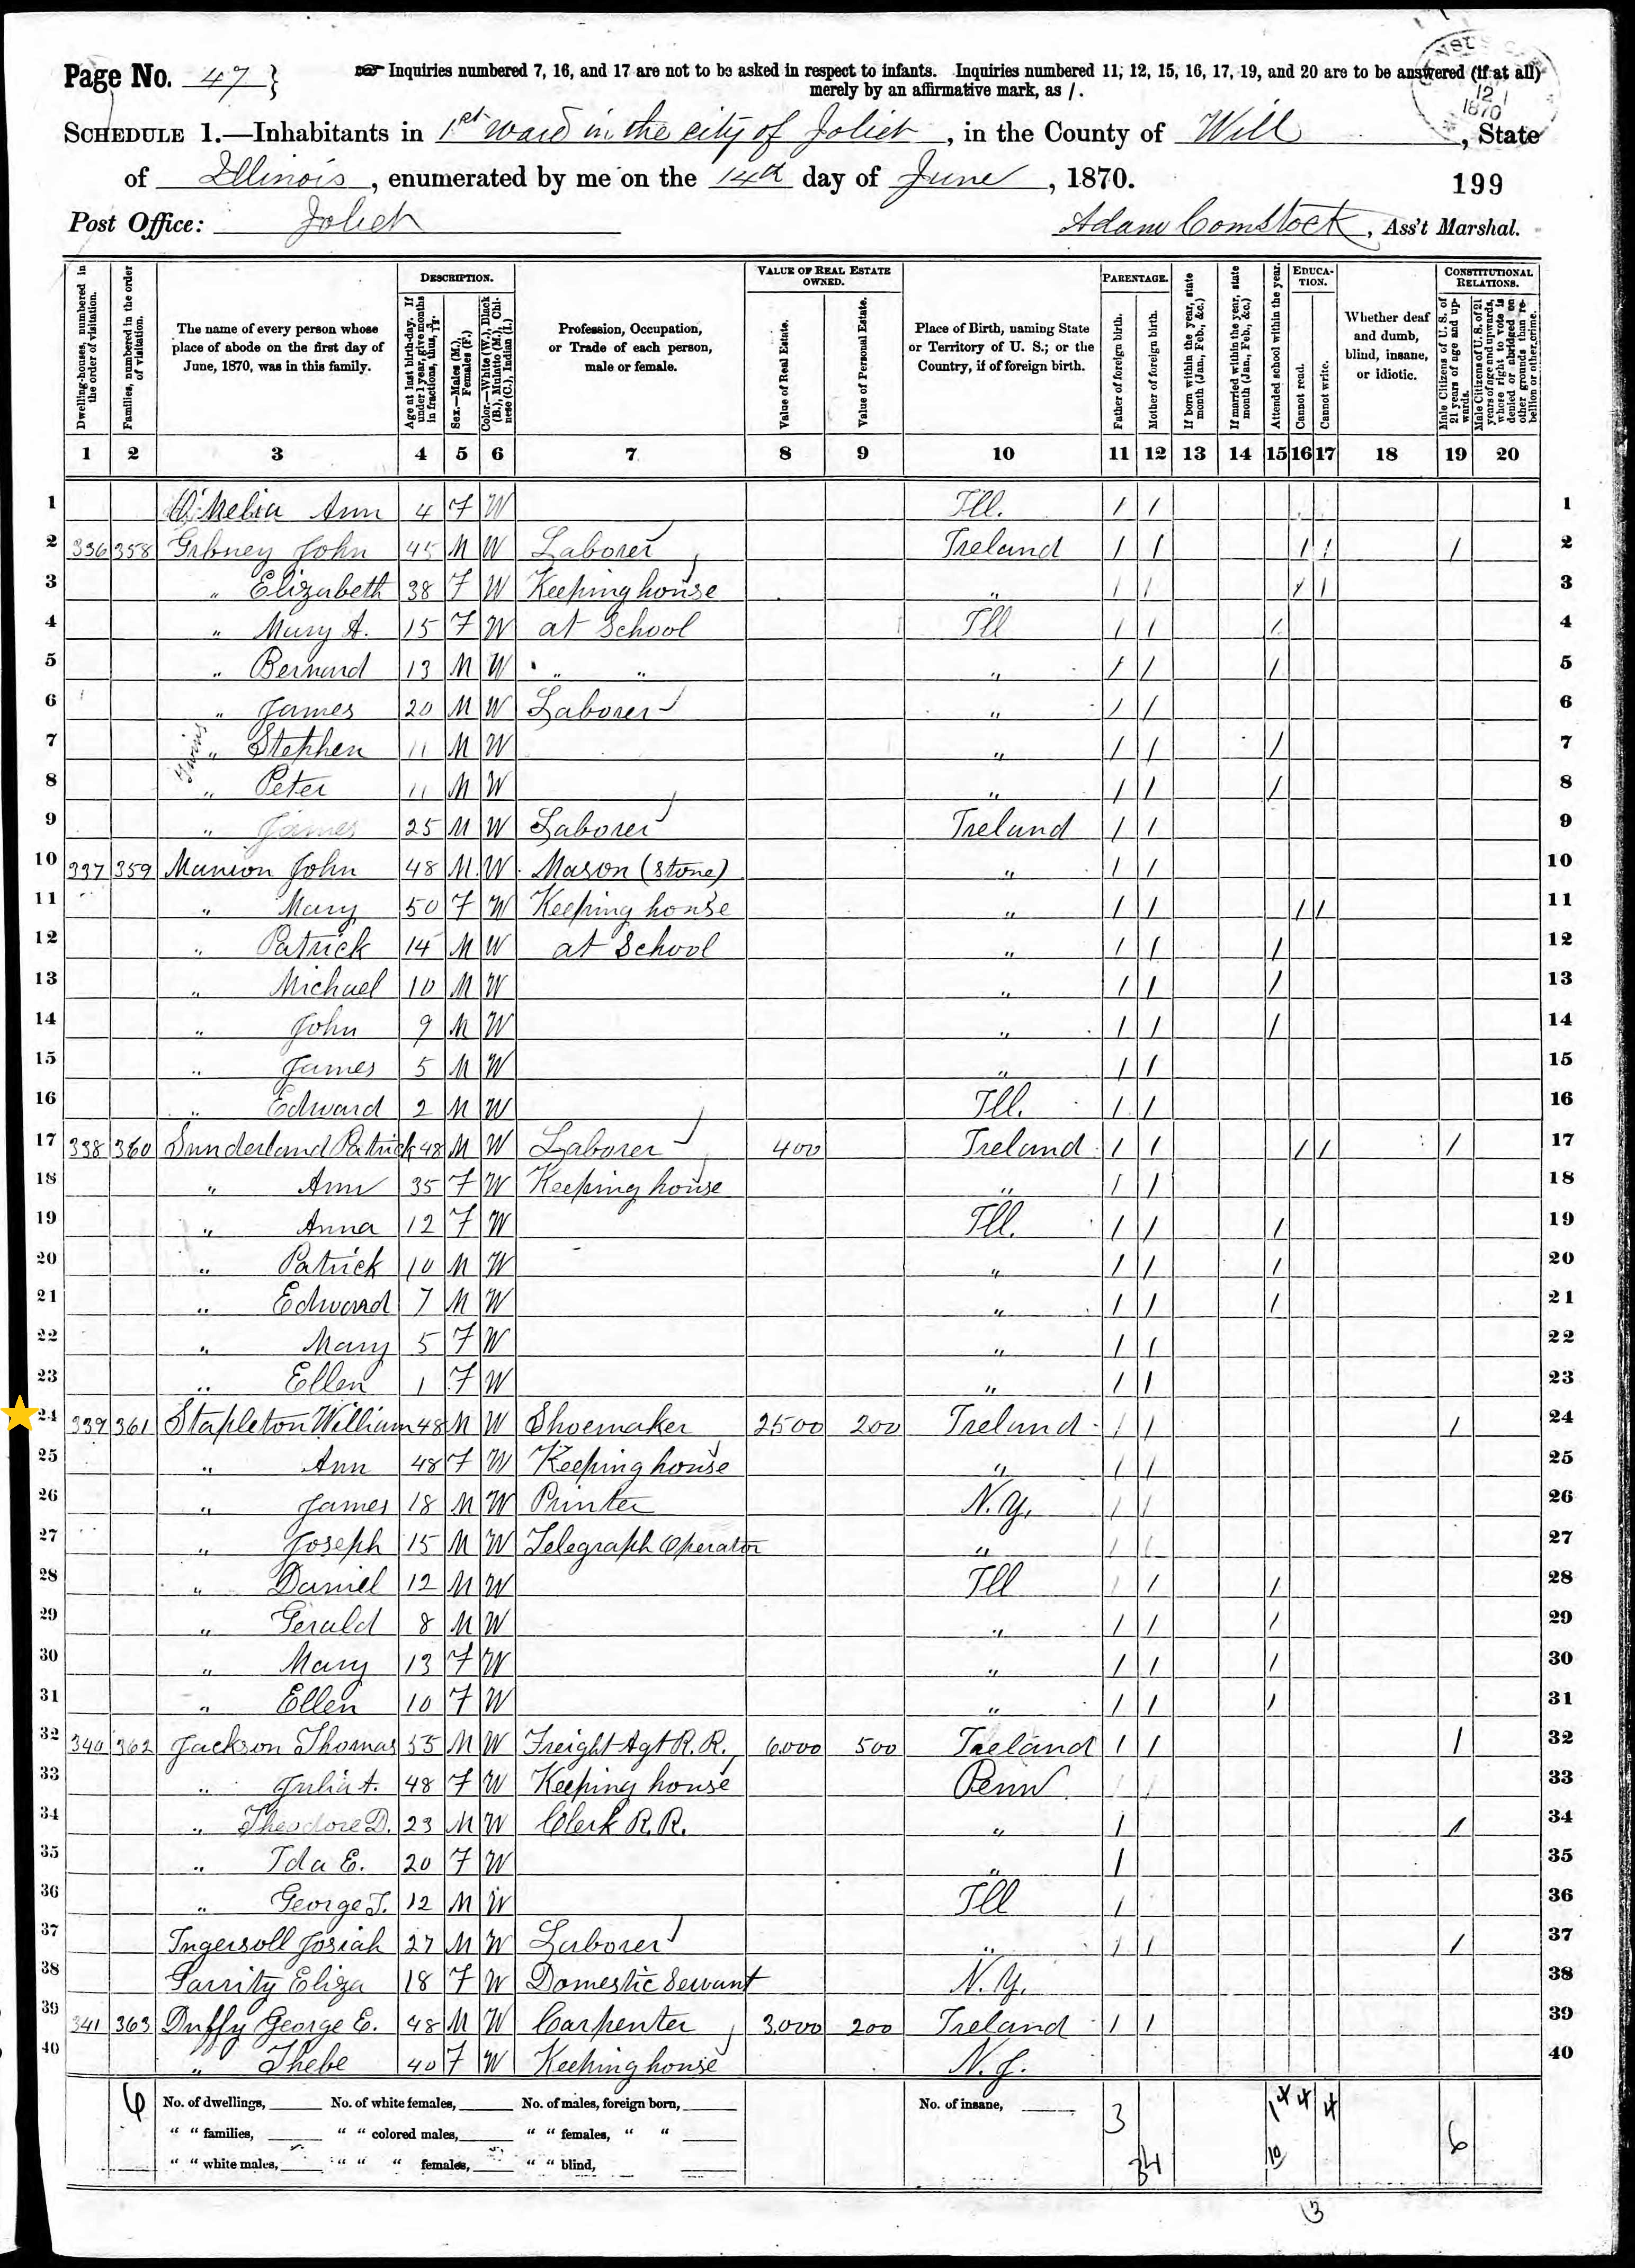 Page No. 47 } Inquiries numbered 7, 16, and 17 are not to be asked in respect to infants. Inquiries numbered 11, 12, 15, 16, 17, 19, and 20 are to be answered (if at all)
merely by an affirmative mark, as /.
12
1870
SCHEDULE 1.—Inhabitants in 1st ward in the city of Joliet, in the County of Will, State
of Illinois, enumerated by me on the 14th day of June, 1870.
199
Post Office: Joliet Adam Comstock, Ass't Marshal.
Dwelling-houses, numbered in the order of visitation.
Families, numbered in the order of visitation.
The name of every person whose place of abode on the first day of June, 1870, was in this family.
DESCRIPTION.
Age at last birth-day. If under 1 year, give months in fractions, thus, 3/12.
Sex.—Males (M.), Females (F.)
Color.—White (W.), Black (B.), Mulatto (M.), Chinese (C.), Indian (I.)
Profession, Occupation, or Trade of each person, male or female.
VALUE OF REAL ESTATE OWNED.
Value of Real Estate.
Value of Personal Estate.
Place of Birth, naming State or Territory of U. S.; or the Country, if of foreign birth.
PARENTAGE.
Father of foreign birth.
Mother of foreign birth.
If born within the year, state month (Jan., Feb., &c.)
If married within the year, state month (Jan., Feb., &c.)
Attended school within the year.
EDUCATION.
Cannot read.
Cannot write.
Whether deaf and dumb, blind, insane, or idiotic.
CONSTITUTIONAL RELATIONS.
Male Citizens of U. S. of 21 years of age and upwards.
Male Citizens of U. S. of 21 years of age and upwards, whose right to vote is denied or abridged on other grounds than rebellion or other crime.
1 2 3 4 5 6 7 8 9 10 11 12 13 14 15 16 17 18 19 20
1 Ann 4 F W Ill. / / 1
2 336 358 Gibney John 45 M W Laborer Ireland / / / / / 2
3 " Elizabeth 38 F W Keeping house " / / / / 3
4 " Mary A. 15 F W at School Ill / / / 4
5 " Bernard 13 M W " " " / / / 5
6 " James 20 M W Laborer " / / 6
7 Twins " Stephen 11 M W " / / / 7
8 " Peter 11 M W " / / / 8
9 " James 25 M W Laborer Ireland / / 9
10 337 359 Manion John 48 M W Mason (Stone) " / / 10
11 " Mary 50 F W Keeping house " / / / / 11
12 " Patrick 14 M W at School " / / / 12
13 " Michael 10 M W " / / / 13
14 " John 9 M W " / / / 14
15 " James 5 M W " / / 15
16 " Edward 2 M W Ill. / / 16
17 338 360 Sunderland Patrick 48 M W Laborer 400 Ireland / / / / / 17
18 " Ann 35 F W Keeping house " / / 18
19 " Anna 12 F W Ill. / / / 19
20 " Patrick 10 M W " / / / 20
21 " Edward 7 M W " / / / 21
22 " Mary 5 F W " / / 22
23 " Ellen 1 F W " / / 23
24 339 361 Stapleton William 48 M W Shoemaker 2500 200 Ireland / / / 24
25 " Ann 48 F W Keeping house " / / 25
26 " James 18 M W Printer N.Y. / / 26
27 " Joseph 15 M W Telegraph Operator " / / 27
28 " Daniel 12 M W Ill / / / 28
29 " Gerald 8 M W " / / / 29
30 " Mary 13 F W " / / / 30
31 " Ellen 10 F W " / / / 31
32 340 362 Jackson Thomas 55 M W Freight Agt R.R. 6000 500 Ireland / / / 32
33 " Julia A. 48 F W Keeping house Penn / / 33
34 " Theodore D. 23 M W Clerk R.R. " / / 34
35 " Ida E. 20 F W " / 35
36 " George T. 12 M W Ill / 36
37 Ingersoll Josiah 27 M W Laborer " / / / 37
38 Garrity Eliza 18 F W Domestic Servant N.Y. 38
39 341 363 Duffy George E. 48 M W Carpenter 3000 200 Ireland / / 39
40 " Thebe 40 F W Keeping house N.J. 40
6 No. of dwellings, No. of white females, No. of males, foreign born, No. of insane, 3
" " families, " " colored males, " " females, " " 6
" " white males, " " " females, " " blind, 34 10
3